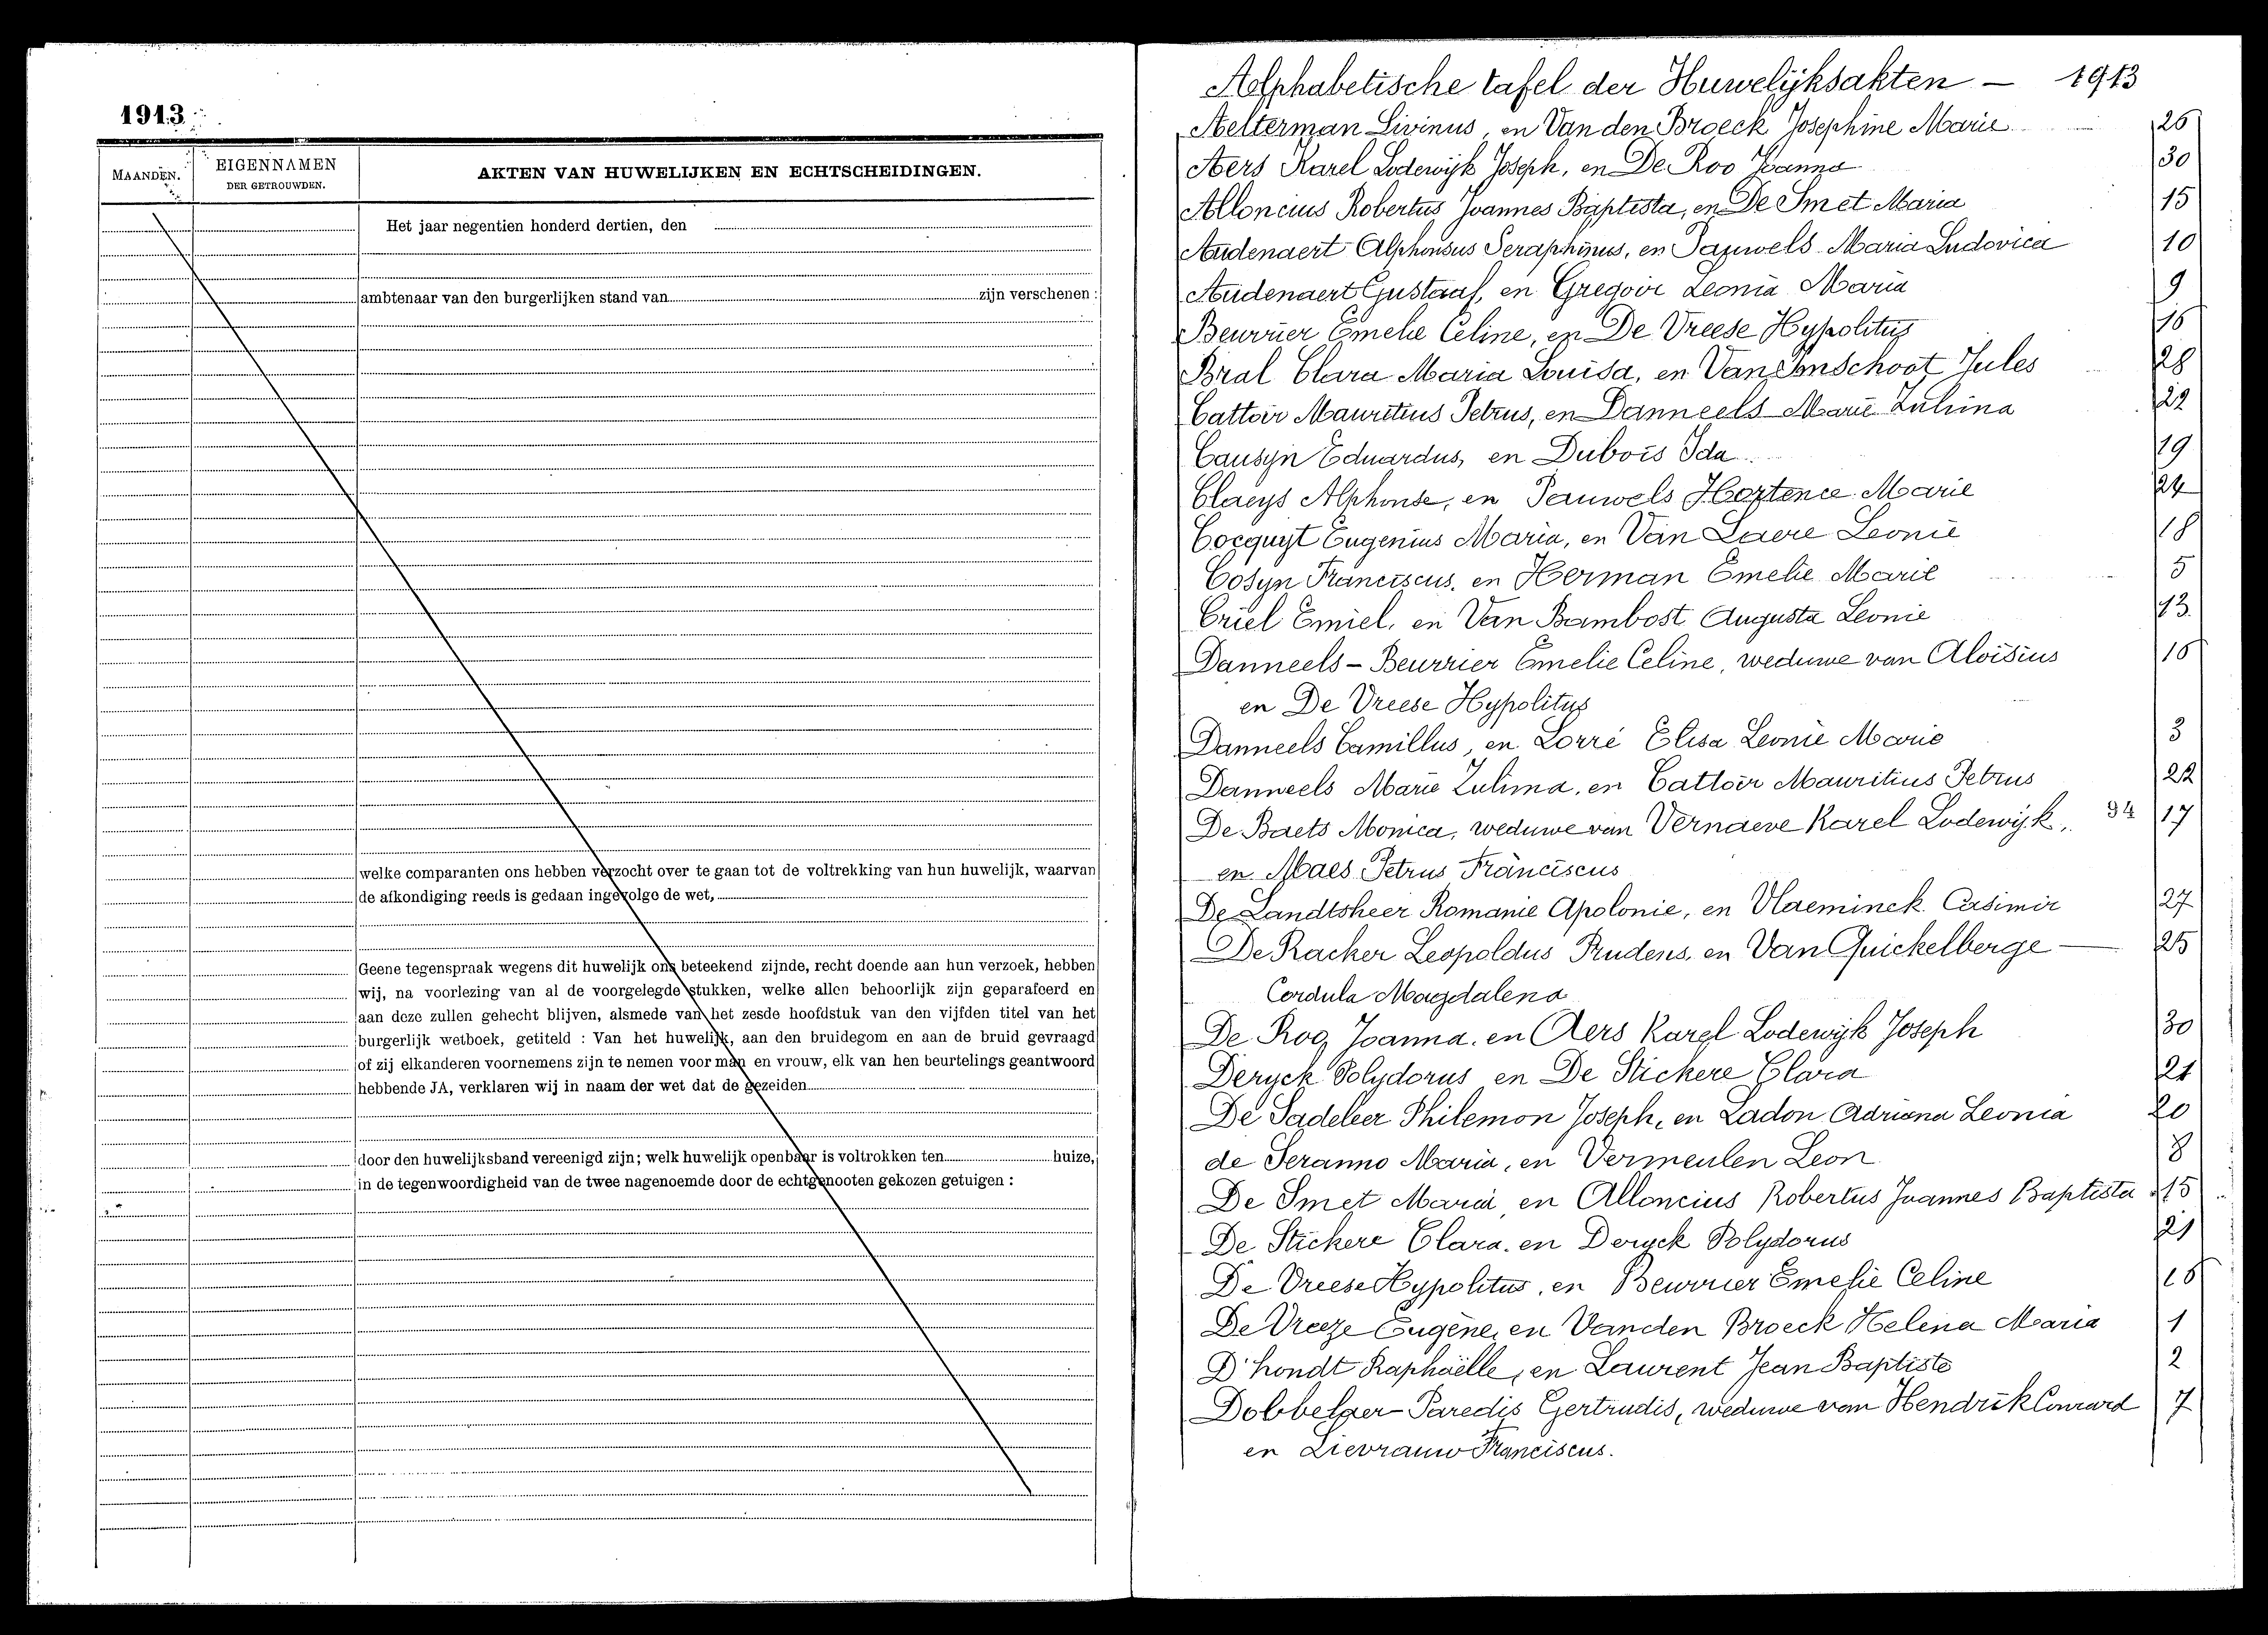 1913
MAANDEN.
EIGENNAMEN
DER GETROUWDEN.
AKTEN VAN HUWELIJKEN EN ECHTSCHEIDINGEN.
Het jaar negentien honderd dertien, den
ambtenaar van den burgerlijken stand van zijn verschenen :
welke comparanten ons hebben verzocht over te gaan tot de voltrekking van hun huwelijk, waarvan
de afkondiging reeds is gedaan ingevolge de wet,
Geene tegenspraak wegens dit huwelijk ons beteekend zijnde, recht doende aan hun verzoek, hebben
wij, na voorlezing van al de voorgelegde stukken, welke allen behoorlijk zijn geparafeerd en
aan deze zullen gehecht blijven, alsmede van het zesde hoofdstuk van den vijfden titel van het
burgerlijk wetboek, getiteld : Van het huwelijk, aan den bruidegom en aan de bruid gevraagd
of zij elkanderen voornemens zijn te nemen voor man en vrouw, elk van hen beurtelings geantwoord
hebbende JA, verklaren wij in naam der wet dat de gezeiden
door den huwelijksband vereenigd zijn; welk huwelijk openbaar is voltrokken ten huize,
in de tegenwoordigheid van de twee nagenoemde door de echtgenooten gekozen getuigen :
Alphabetische tafel der Huwelijksakten — 1913
Aelterman Livinus, en Van den Broeck Josephine Marie 26
Aers Karel Lodewijk Joseph, en De Roo Joanna 30
Alloncius Robertus Joannes Baptista, en De Smet Maria 15
Audenaert Alphonsus Seraphinus, en Pauwels Maria Ludovica 10
Audenaert Gustaaf, en Gregoir Leonia Maria 9
Beurrier Emelie Celine, en De Vreese Hypolitus 16
Bral Clara Maria Louisa, en Van Imschoot Jules 28
Cattoir Mauritius Petrus, en Danneels Marie Zulima 22
Causyn Eduardus, en Dubois Ida 19
Claeys Alphonse, en Pauwels Hortence Marie 24
Cocquyt Eugenius Maria, en Van Laere Leonie 18
Cosyn Franciscus, en Herman Emelie Marie 5
Criel Emiel, en Van Bambost Augusta Leonie 13
Danneels - Beurrier Emelie Celine, weduwe van Aloïsius 16
en De Vreese Hypolitus
Danneels Camillus, en Lorré Elisa Leonie Marie 3
Danneels Marie Zulima, en Cattoir Mauritius Petrus 22
De Baets Monica, weduwe van Vernaeve Karel Lodewijk, 34 17
en Maes Petrus Franciscus
De Landtsheer Romanie Apolonie, en Vlaeminck Casimir 27
De Racker Leopoldus Prudens, en Van Quickelberge — 25
Cordula Magdalena
De Roo Joanna, en Aers Karel Lodewijk Joseph 30
Deryck Polydorus en De Stickere Clara 21
De Sadeleer Philemon Joseph, en Ladon Adriana Leonia 20
de Seranno Maria, en Vermeulen Leon 8
De Smet Maria en Alloncius Robertus Joannes Baptista 15
De Stickere Clara, en Deryck Polydorus 21
De Vreese Hypolitus, en Beurrier Emelie Celine 16
De Vreeze Eugène, en Vanden Broeck Helena Maria 1
D'hondt Raphaëlle, en Laurent Jean Baptiste 2
Paredis Gertrudis, weduwe van Hendrik Conrard 7
en Lievrauw Franciscus.